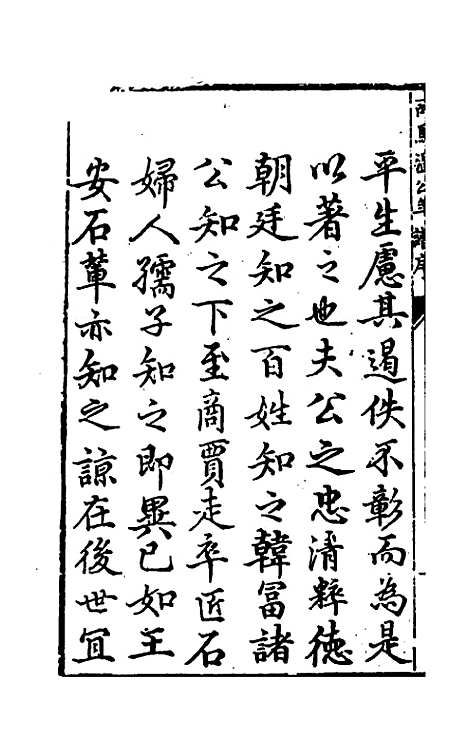 平生慮其遏佚不彰而為是
以著之也夫公之忠清粹德
朝廷知之百姓知之韓富諸
公知之下至商賈走卒匠石
婦人孺子知之即異已如王
安石軰亦知之諒在後世冝